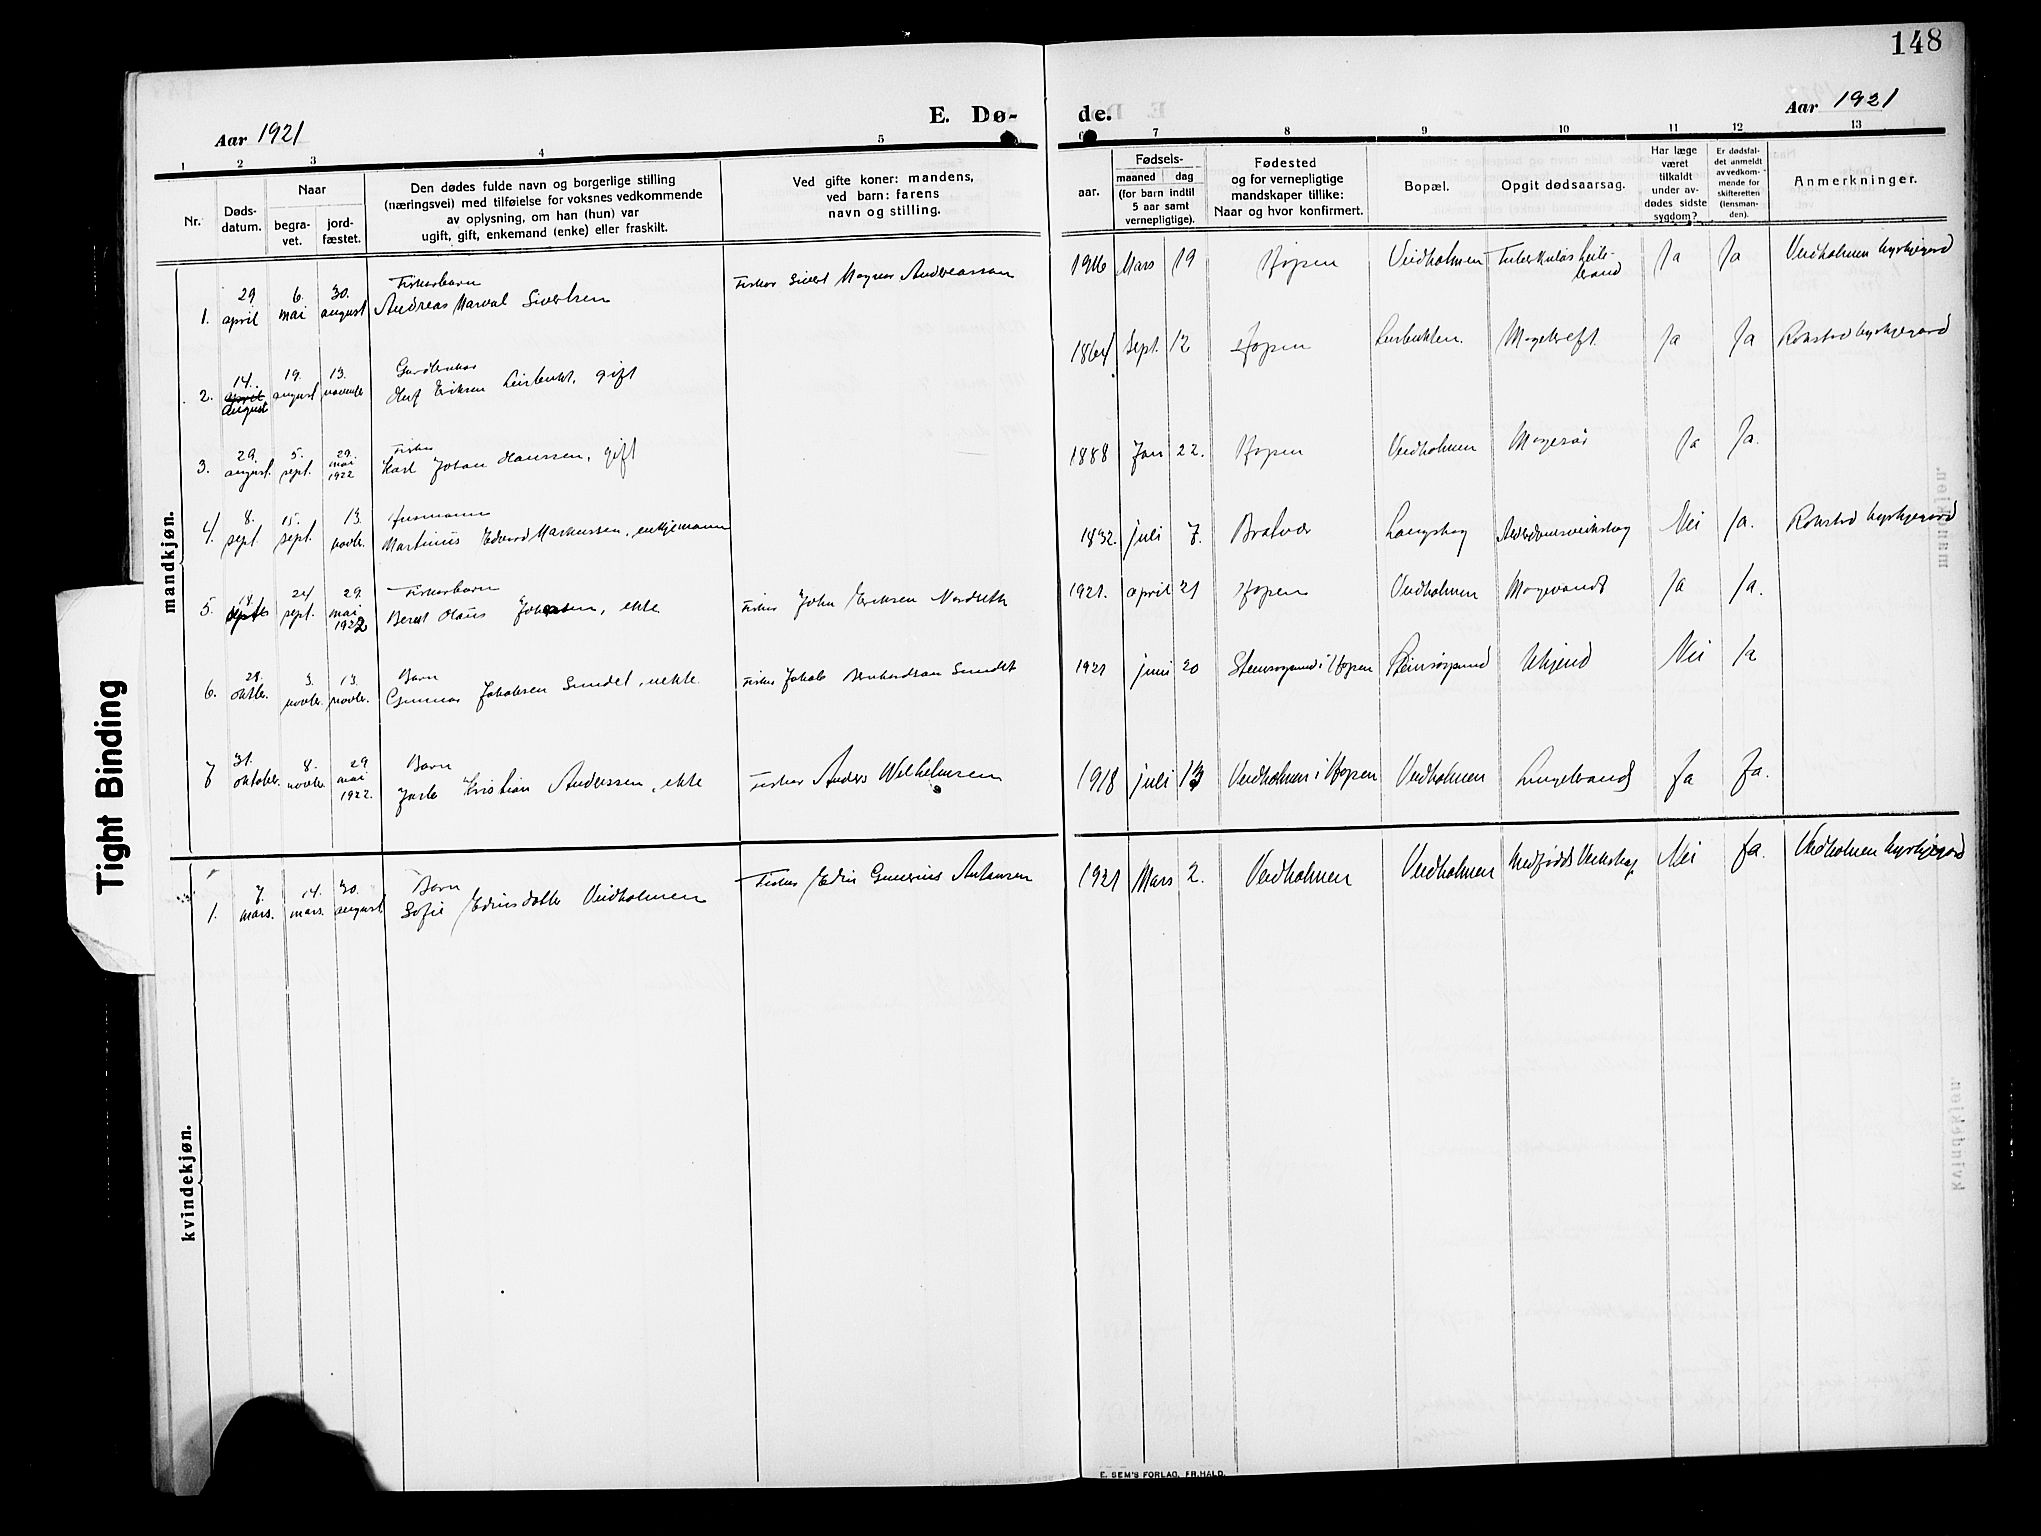 148
Aar 1921
E. Dø-
de.
Aar 1921
1 2 3 4 5
6 7 8 9 10 11 12 13
Nr.
Døds-
datum.
Naar
begra-
vet.
jord-
fæstet.
Den dødes fulde navn og borgerlige stilling
(næringsvei) med tilføielse for voksnes vedkommende
av oplysning, om han (hun) var
ugift, gift, enkemand (enke) eller fraskilt.
Ved gifte koner: mandens,
ved barn: farens
navn og stilling.
aar.
Fødsels-
maaned dag
(for barn indtil
5 aar samt
vernepligtige).
Fødested
og for vernepligtige
mandskaper tillike:
Naar og hvor konfirmert.
Bopæl.
Opgit dødsaarsag.
Har læge
været
tilkaldt
under av-
dødes sidste
sygdom?
Er dødsfal-
det anmeldt
av vedkom-
mende for
skifteretten
(lensman-
den).
Anmerkninger.
mandkjøn.
1. 29 april 6. mai 30. august Fiskerbarn
Andreas Marval Sivertsen Fisker Sivert Magnus Andreassen 1916 Mars 19 Hopen Veidholmen Tuberkuløs Ja Ja Veidholmen kyrkjegard
2. 14. april august 19. august 13. novembr
Olaf Eriksen Leirbukt, gift 1864 Sept. 12 Hopen Leirbukten. Magekreft. Ja Ja Rokstad kyrkjegard
3. 29. august. 5. sept. 29. mai 1922 Fisker
Karl Johan Hanssen, gift 1888 Jan 22. Hopen Veidholmen Magesår Ja Ja.
4. 8. sept. 15. sept. 13. novbr. Husmann
Martinus Edvard Markussen, enkjemann 1832. juli 7. Bratvær Langskog Nei Ja. Rokstad kyrkjegard
5. 18. septe 24 sept. 29. mai 1922 Fiskerbarn
Bernt Olaus Johansen, ekte Fisker John Eriksen 1921. april 21 Hopen Veidholmen Magevondt Ja Ja.
6. 29. oktbr. 3. novbr. 13. novbr. Barn
Gunnar Jakobsen Sundet, uekte Fisker Jakob Bernhardsen Sundet 1921 juni 20 Steinsøysund i Hopen Steinsøysund Ukjend Nei Ja
7 31. oktober. 8. novbr. 29 mai 1922. Barn
Jarle Kristian Anderssen, ekte Fisker Anders Wilhelmsen 1918 juli 13 Veidholmen i Hopen Veidholmen Lungebrand Ja Ja.
kvindekjøn.
1. 7. mars. 14. mars. 30. august Barn
Sofie Edinsdatter Veidholmen Fisker Edin Gunerius Antonsen 1921 Mars 2. Veidholmen Veidholmen Medfødd Veikskap Nei Ja. Veidholmen kyrkjegard
Tight Binding
E. SEM'S FORLAG, FR.HALD.